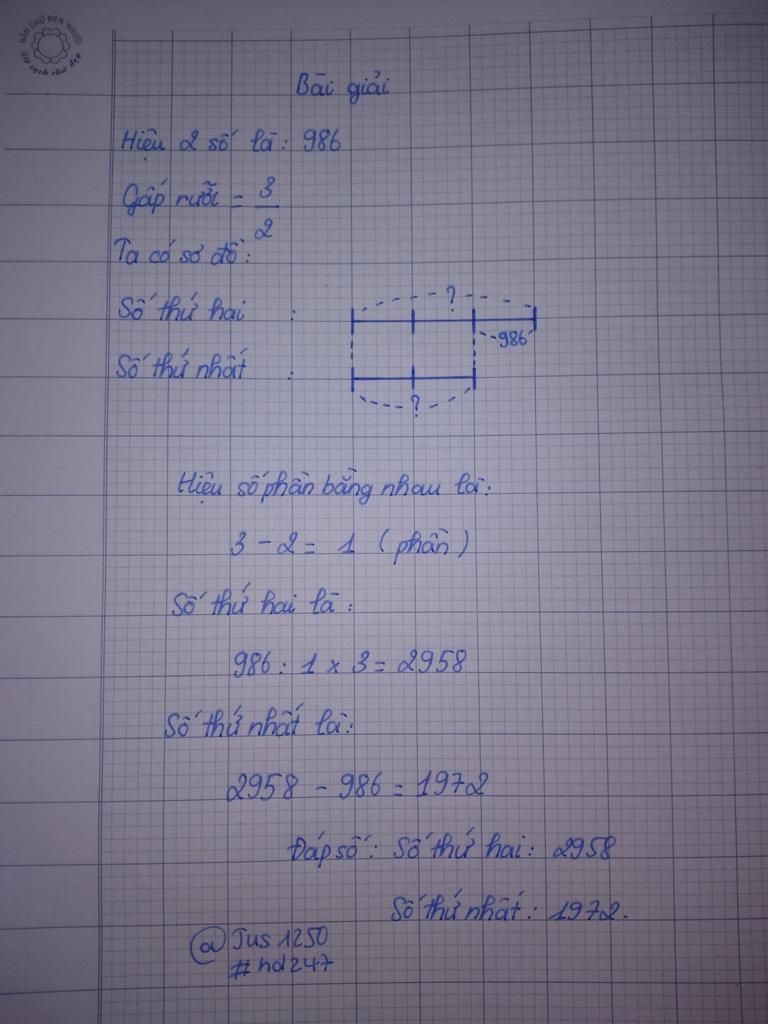 NẮN CHỮ RÈN NGƯỜI
Vở sạch chữ đẹp
Bài giải
Hiệu 2 số là: 986
Gấp rưỡi = 3/2
Ta có sơ đồ:
?
Số thứ hai :
986
Số thứ nhất :
?
Hiệu số phần bằng nhau là:
3 - 2 = 1 (phần)
Số thứ hai là:
986 : 1 x 3 = 2958
Số thứ nhất là:
2958 - 986 = 1972
Đáp số: Số thứ hai: 2958
Số thứ nhất: 1972.
@ Jus 1250
# hd247